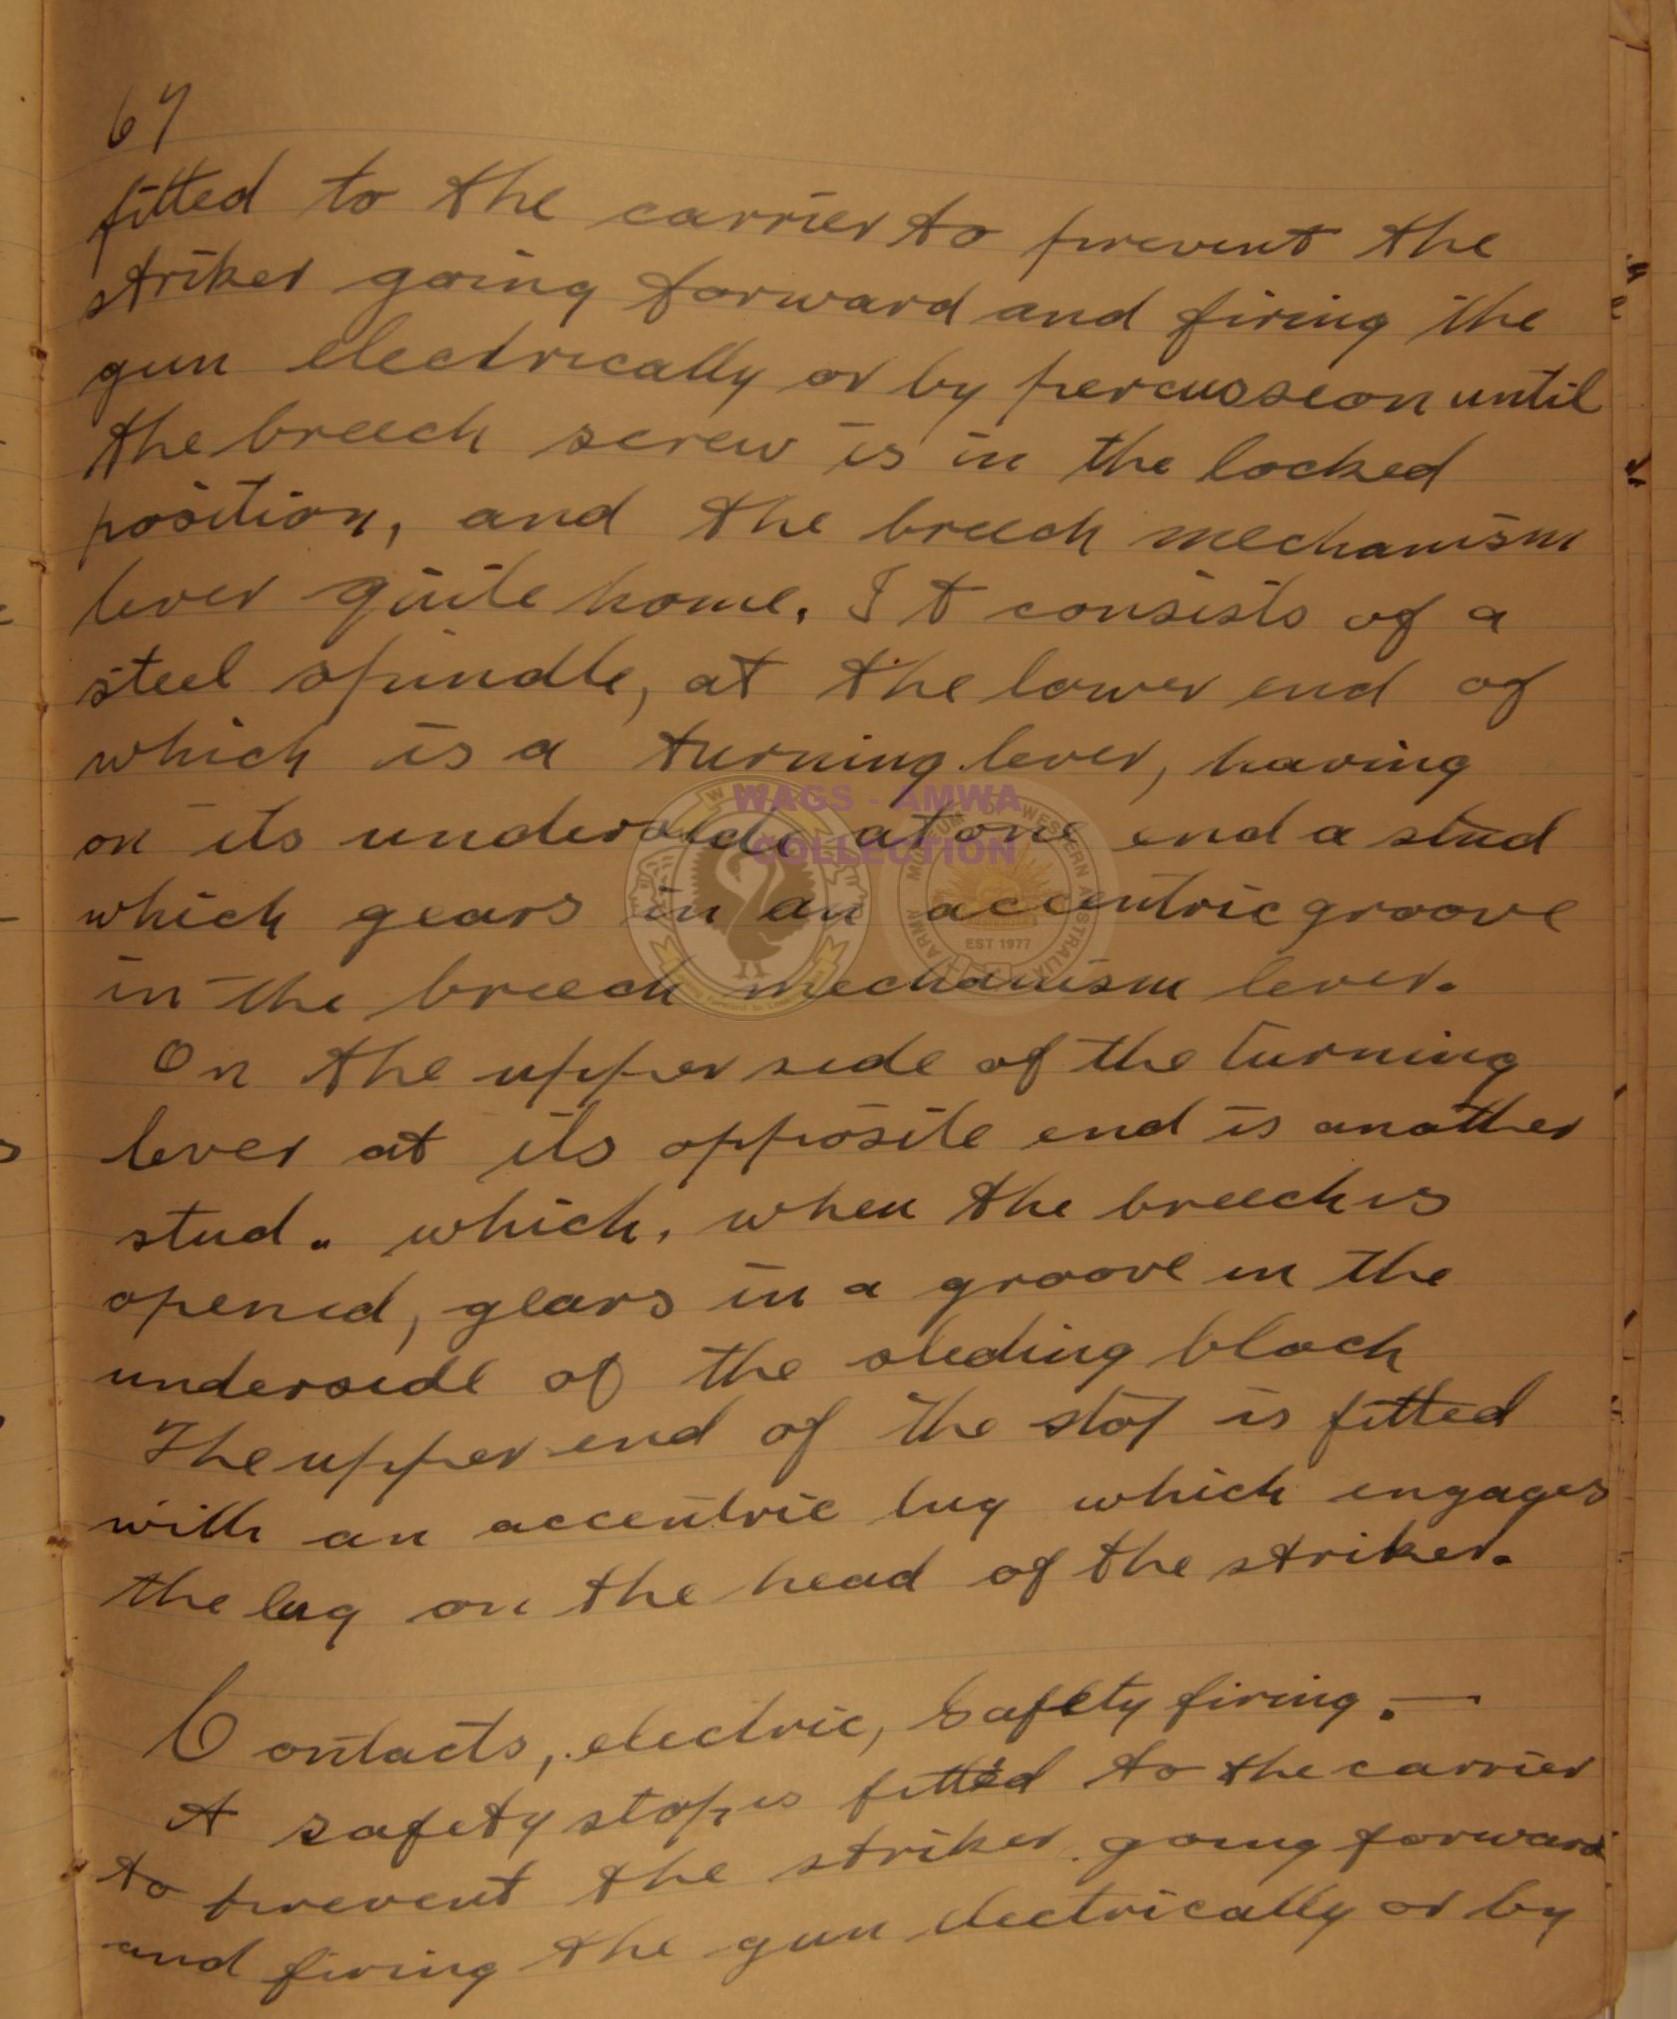 67
fitted to the carrier to prevent the
striker going forward and firing the
gun electrically or by percussion until
the breech screw is in the locked
position, and the breech mechanism
lever quite home. It consists of a
steel spindle, at the lower end of
which is a turning lever, having
on its underside at one end a stud
which gears in an accentric groove
in the breech mechanism lever.
On the upper side of the turning
lever at its opposite end is another
stud. which, when the breech is
opened, gears in a groove in the
underside of the sliding block
The upper end of the stop is fitted
with an accentric lug which engages
the lug on the head of the striker.
Contacts, electric, Safety firing. —
A safety stop is fitted to the carrier
to prevent the striker going forward
and firing the gun electrically or by
WAGS - AMWA
COLLECTION
EST 1977